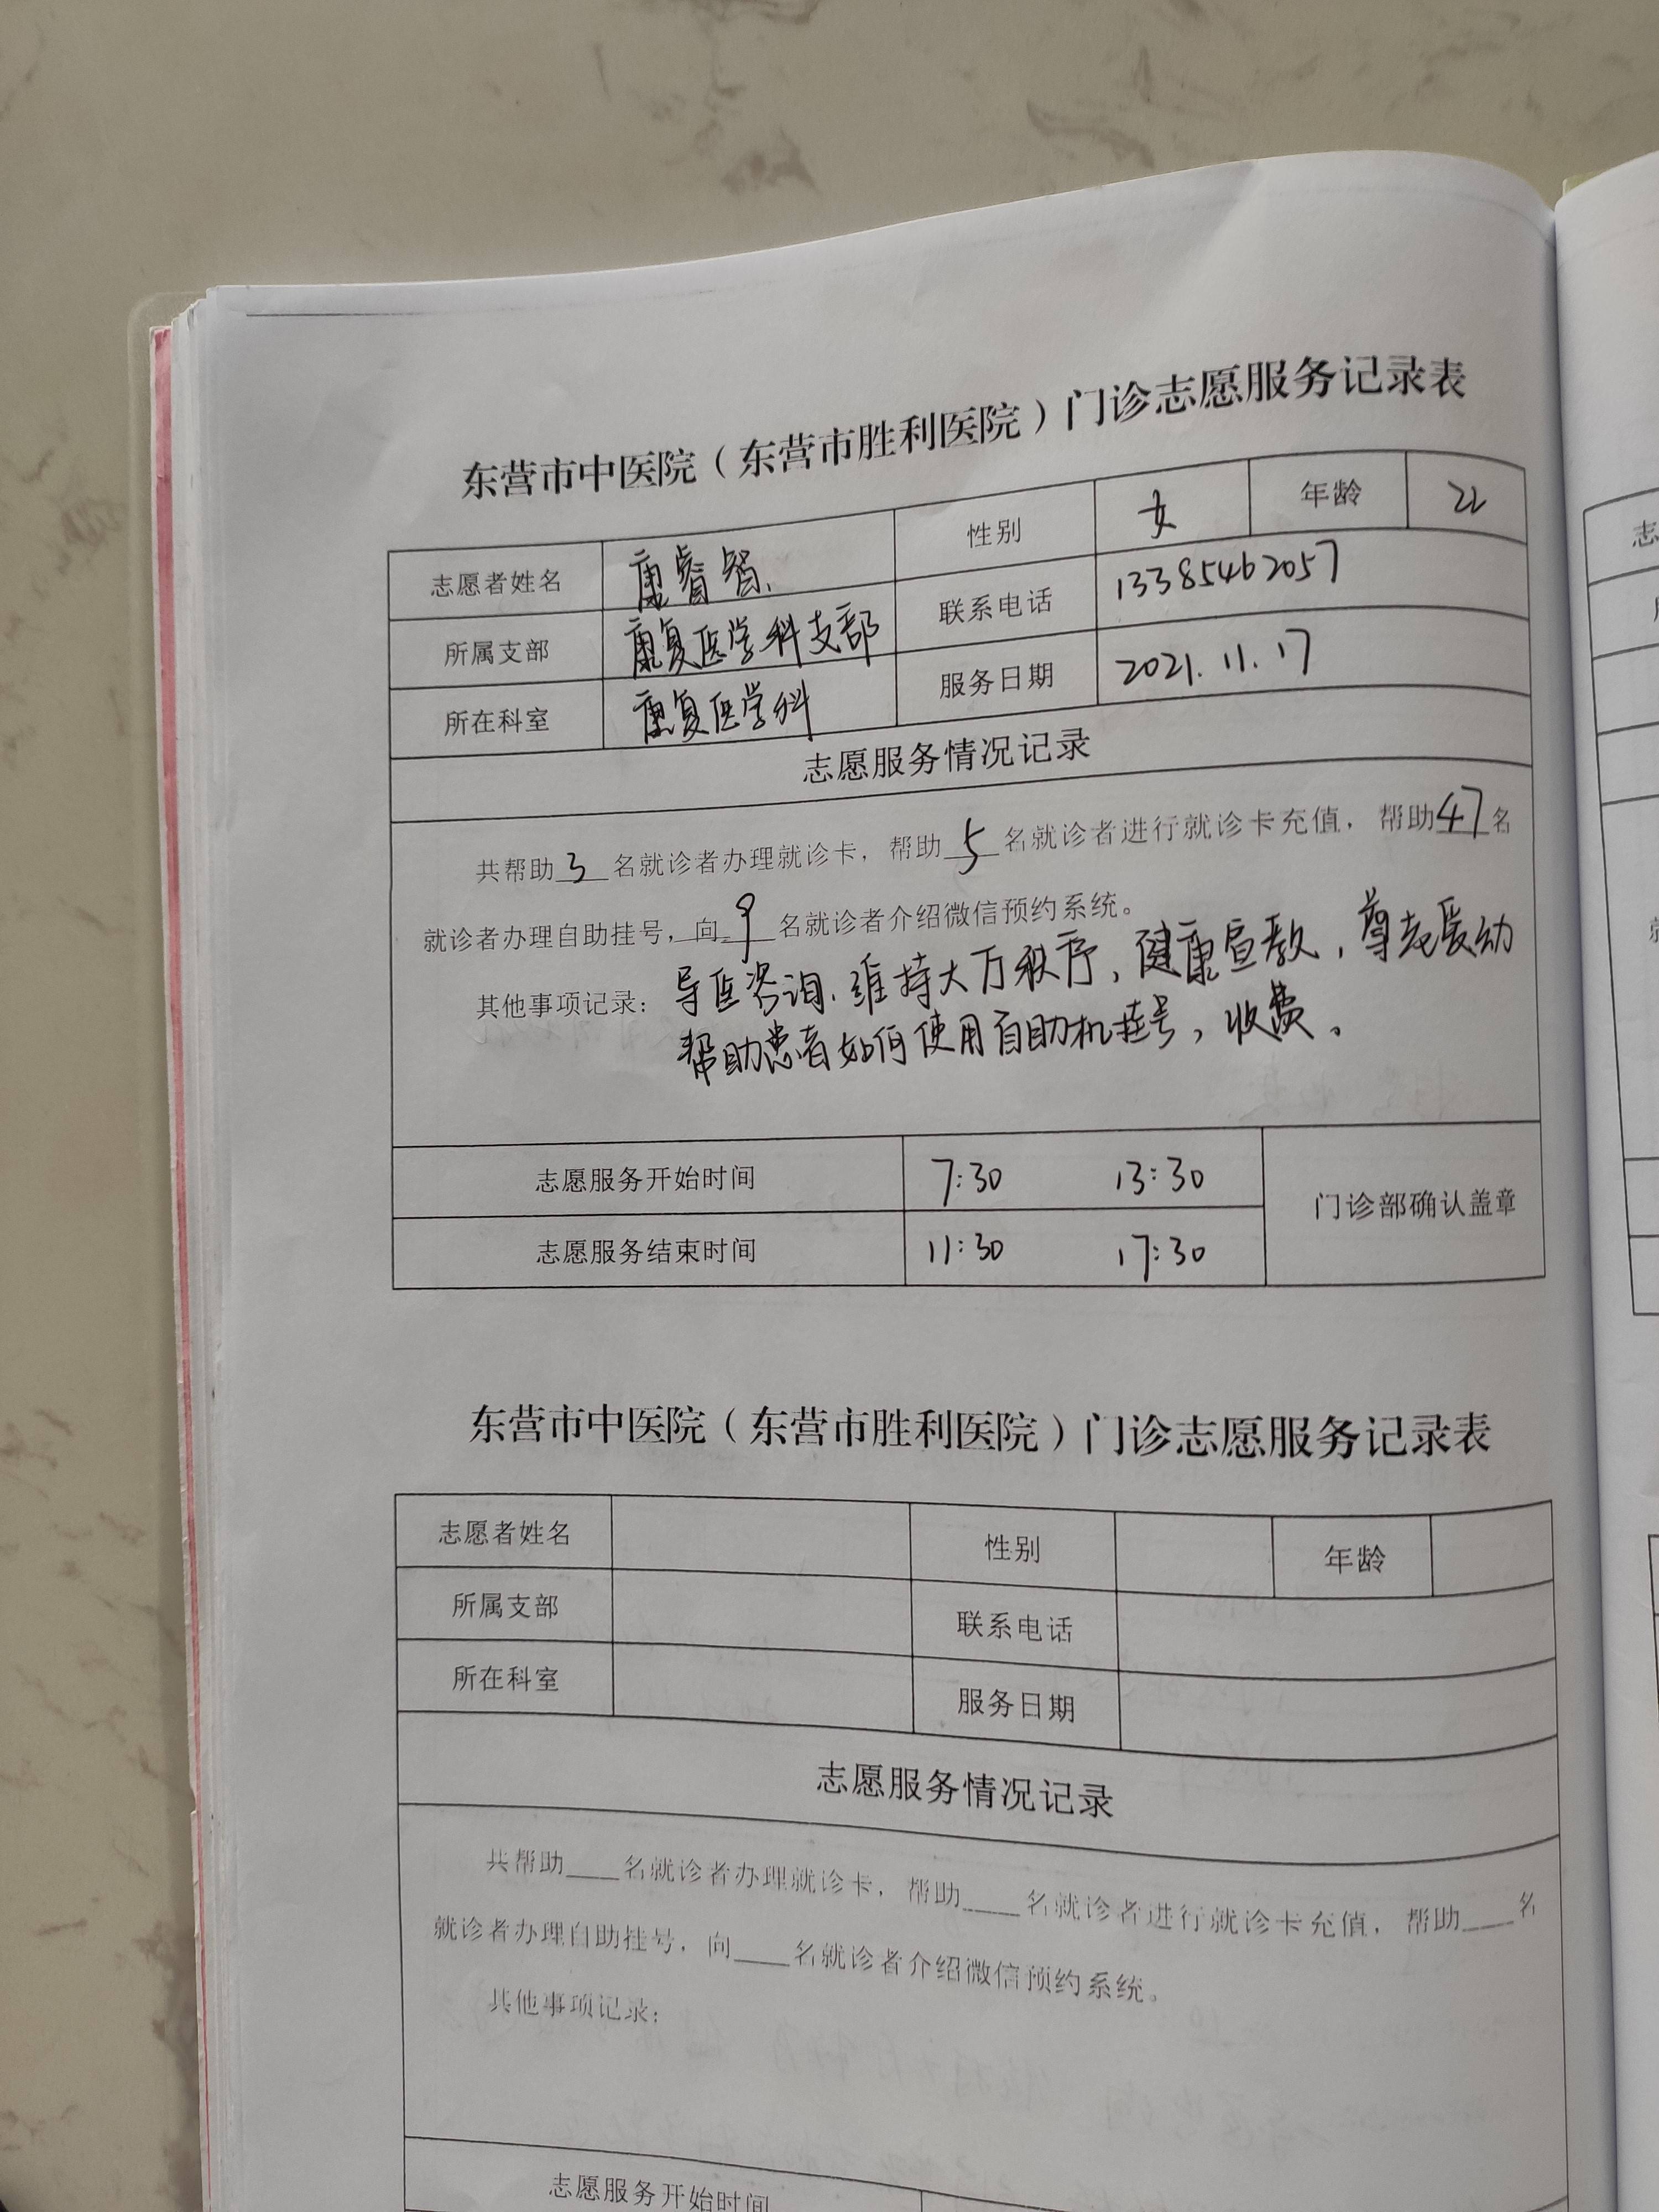 东营市中医院（东营市胜利医院）门诊志愿服务记录表
志愿者姓名 康睿智 性别 女 年龄 22
所属支部 康复医学科支部 联系电话 13385462057
所在科室 康复医学科 服务日期 2021.11.17
志愿服务情况记录
共帮助3名就诊者办理就诊卡，帮助5名就诊者进行就诊卡充值，帮助47名
就诊者办理自助挂号，向9名就诊者介绍微信预约系统。
其他事项记录：导医咨询、维持大万秩序，健康宣教，尊老爱幼
帮助患者如何使用自助机挂号，收费。
志愿服务开始时间 7:30 13:30 门诊部确认盖章
志愿服务结束时间 11:30 17:30
东营市中医院（东营市胜利医院）门诊志愿服务记录表
志愿者姓名 性别 年龄
所属支部 联系电话
所在科室 服务日期
志愿服务情况记录
共帮助____名就诊者办理就诊卡，帮助____名就诊者进行就诊卡充值，帮助____名
就诊者办理自助挂号，向____名就诊者介绍微信预约系统。
其他事项记录：
志愿服务开始时间
志